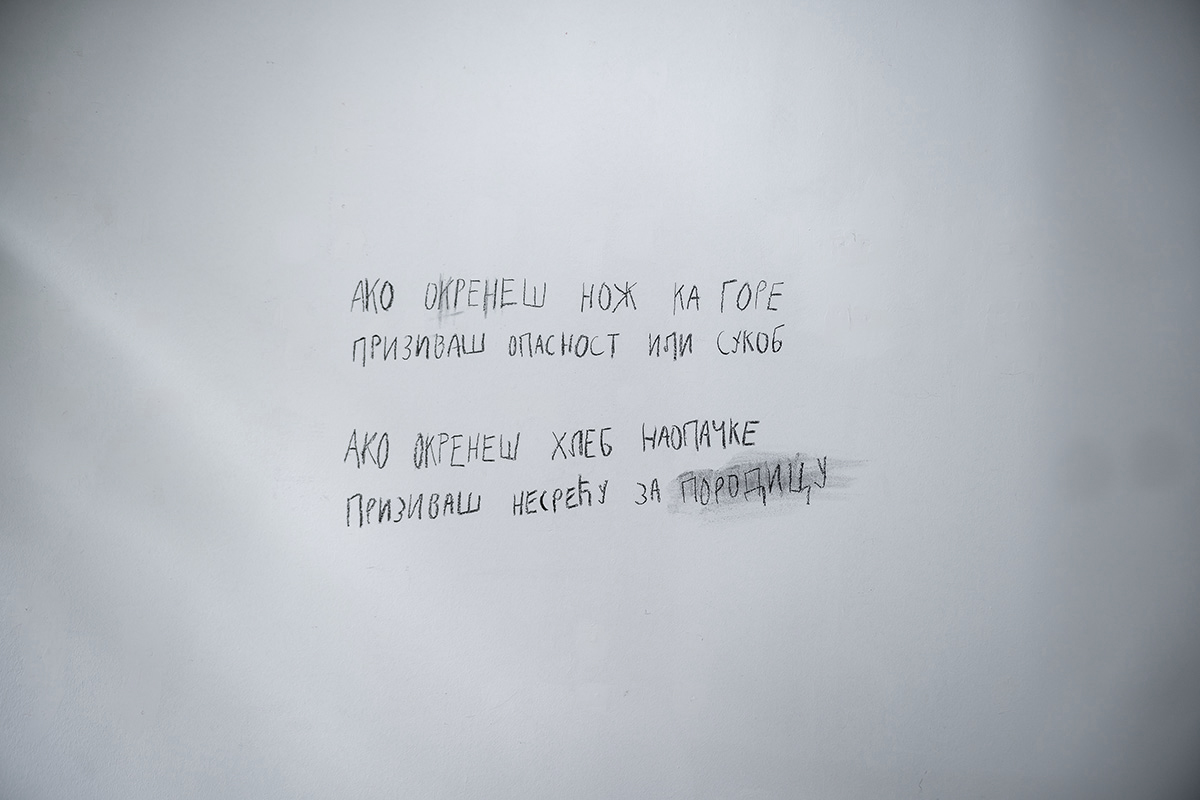 АКО ОКРЕНЕШ НОЖ КА ГОРЕ
ПРИЗИВАШ ОПАСНОСТ ИЛИ СУКОБ
АКО ОКРЕНЕШ ХЛЕБ НАОПАЧКЕ
ПРИЗИВАШ НЕСРЕЋУ ЗА ПОРОДИЦУ